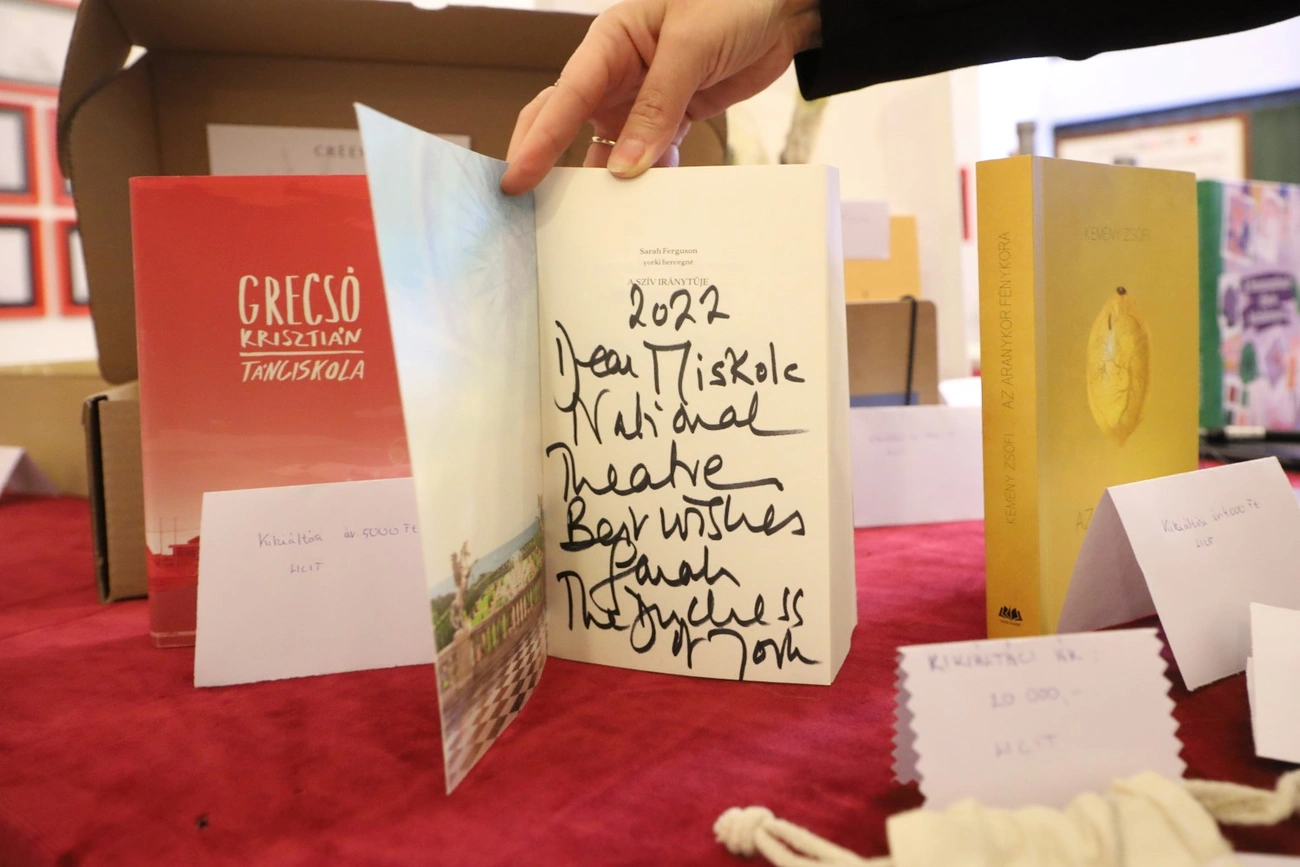 GRECSÓ
KRISZTIÁN
TÁNCISKOLA
Kikiáltási ár 5000 Ft
LICIT
Sarah Ferguson
yorki hercegné
A SZÍV IRÁNYTŰJE
2022
Dear Miskolc
National
Theatre
Best wishes
Sarah
The Duchess
of York
KEMÉNY ZSÓFI AZ ARANYKOR FÉNYKORA
KEMÉNY ZSÓFI
AZ
LICIT
KIKIÁLTÁCI ÁR:
20 000,-
LICIT